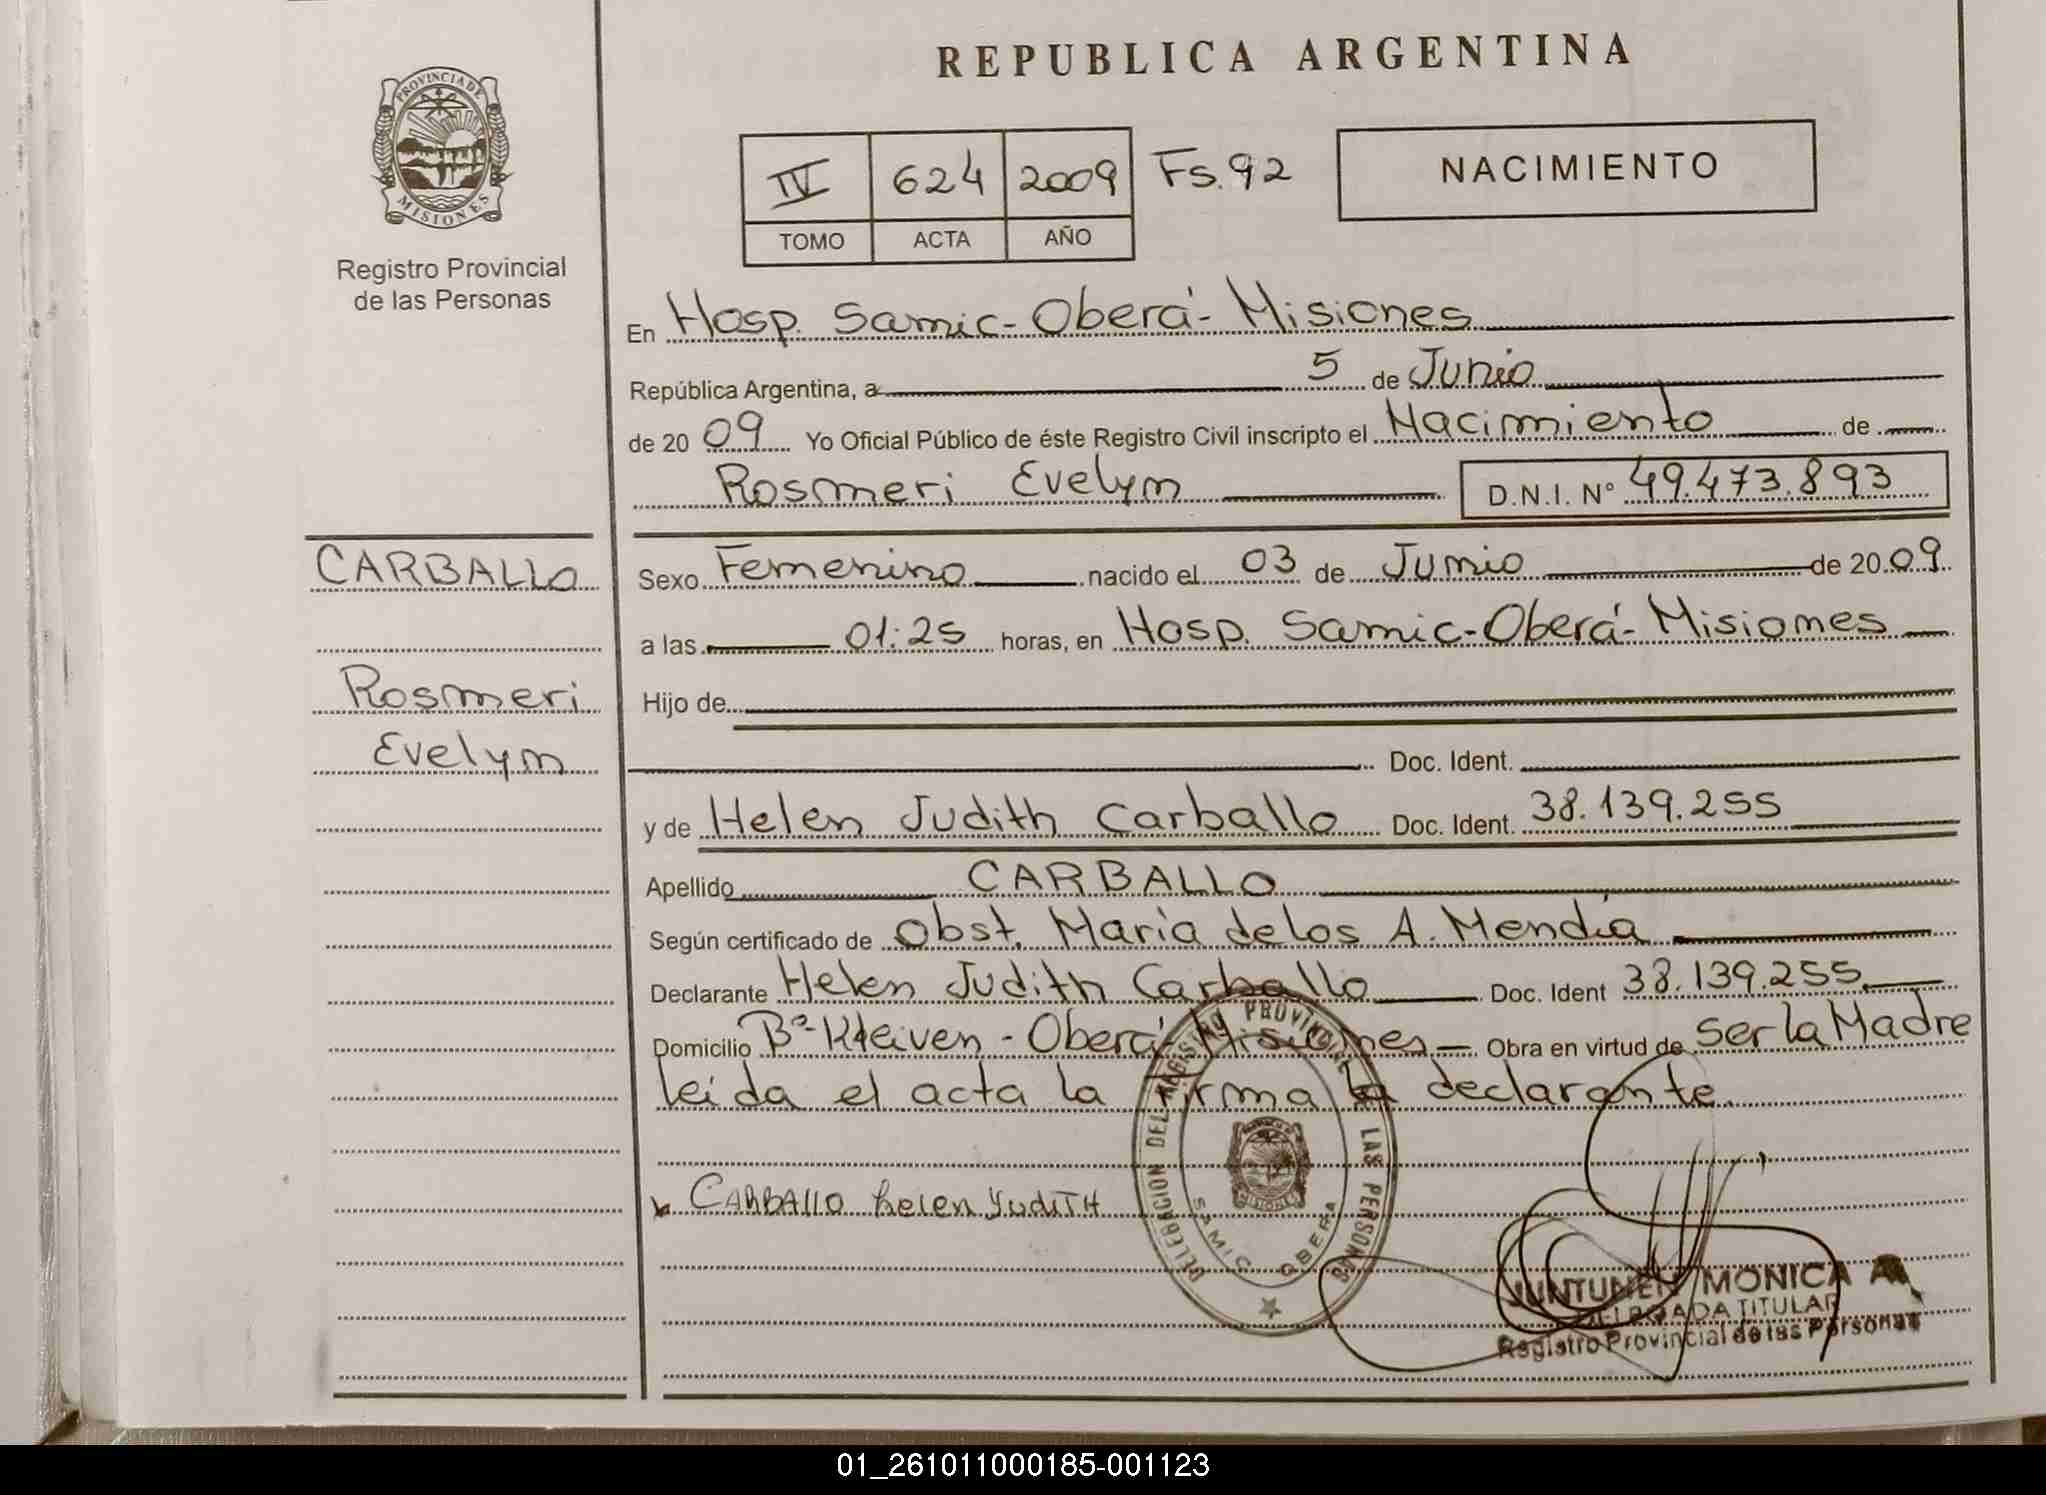 REPUBLICA ARGENTINA
PROVINCIA DE
MISIONES
Registro Provincial
de las Personas
IV 624 2009 Fs. 92
TOMO ACTA AÑO
NACIMIENTO
En Hosp. Samic - Oberá - Misiones
República Argentina, a 5 de Junio
de 20 09 Yo Oficial Público de éste Registro Civil inscripto el Nacimiento de
Rosmeri Evelyn D.N.I. Nº 49.473.893
CARBALLO
Rosmeri
Evelyn
Sexo Femenino nacido el 03 de Junio de 20 09
a las 01:25 horas, en Hosp. Samic - Oberá - Misiones
Hijo de
Doc. Ident.
y de Helen Judith Carballo Doc. Ident. 38.139.255
Apellido CARBALLO
Según certificado de Obst. Maria de los A. Mendía
Declarante Helen Judith Carballo Doc. Ident 38.139.255
Domicilio Bº Kleiven - Oberá - Misiones Obra en virtud de Ser la Madre
leida el acta la firma la declarante
CARBALLO helen Judith
DELEGACION DEL REGISTRO PROVINCIAL DE LAS PERSONAS
SAMIC OBERA
JUNTUNEN MONICA A
DELEGADA TITULAR
Registro Provincial de las Personas
01_261011000185-001123